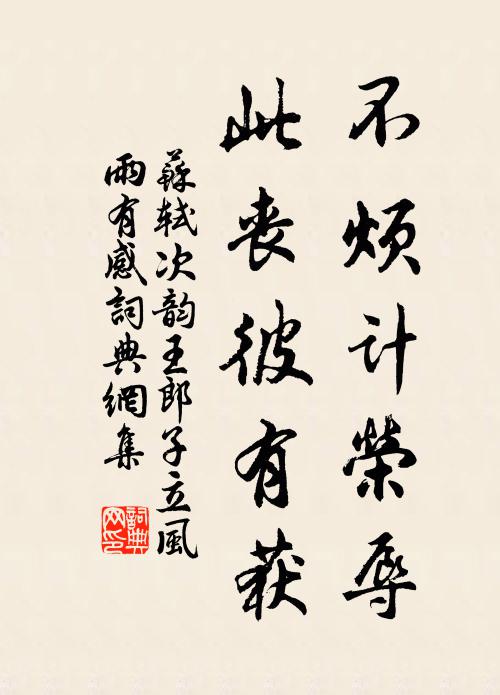 不烦计荣辱
此丧彼有获
蘇轼次韵王郎子立風
雨有感詞典網集
詞典网印